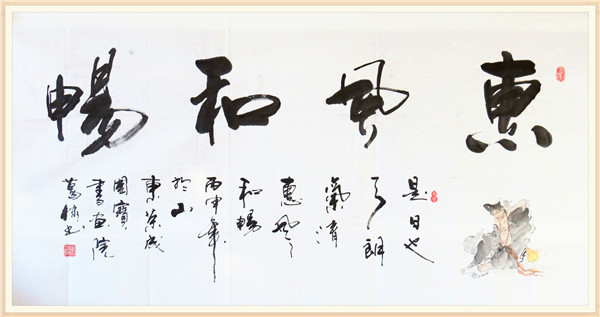 惠風和暢
是日也
天朗
氣清
惠風
和暢
丙申年
於山
東榮成
國寶
書畫院
葛